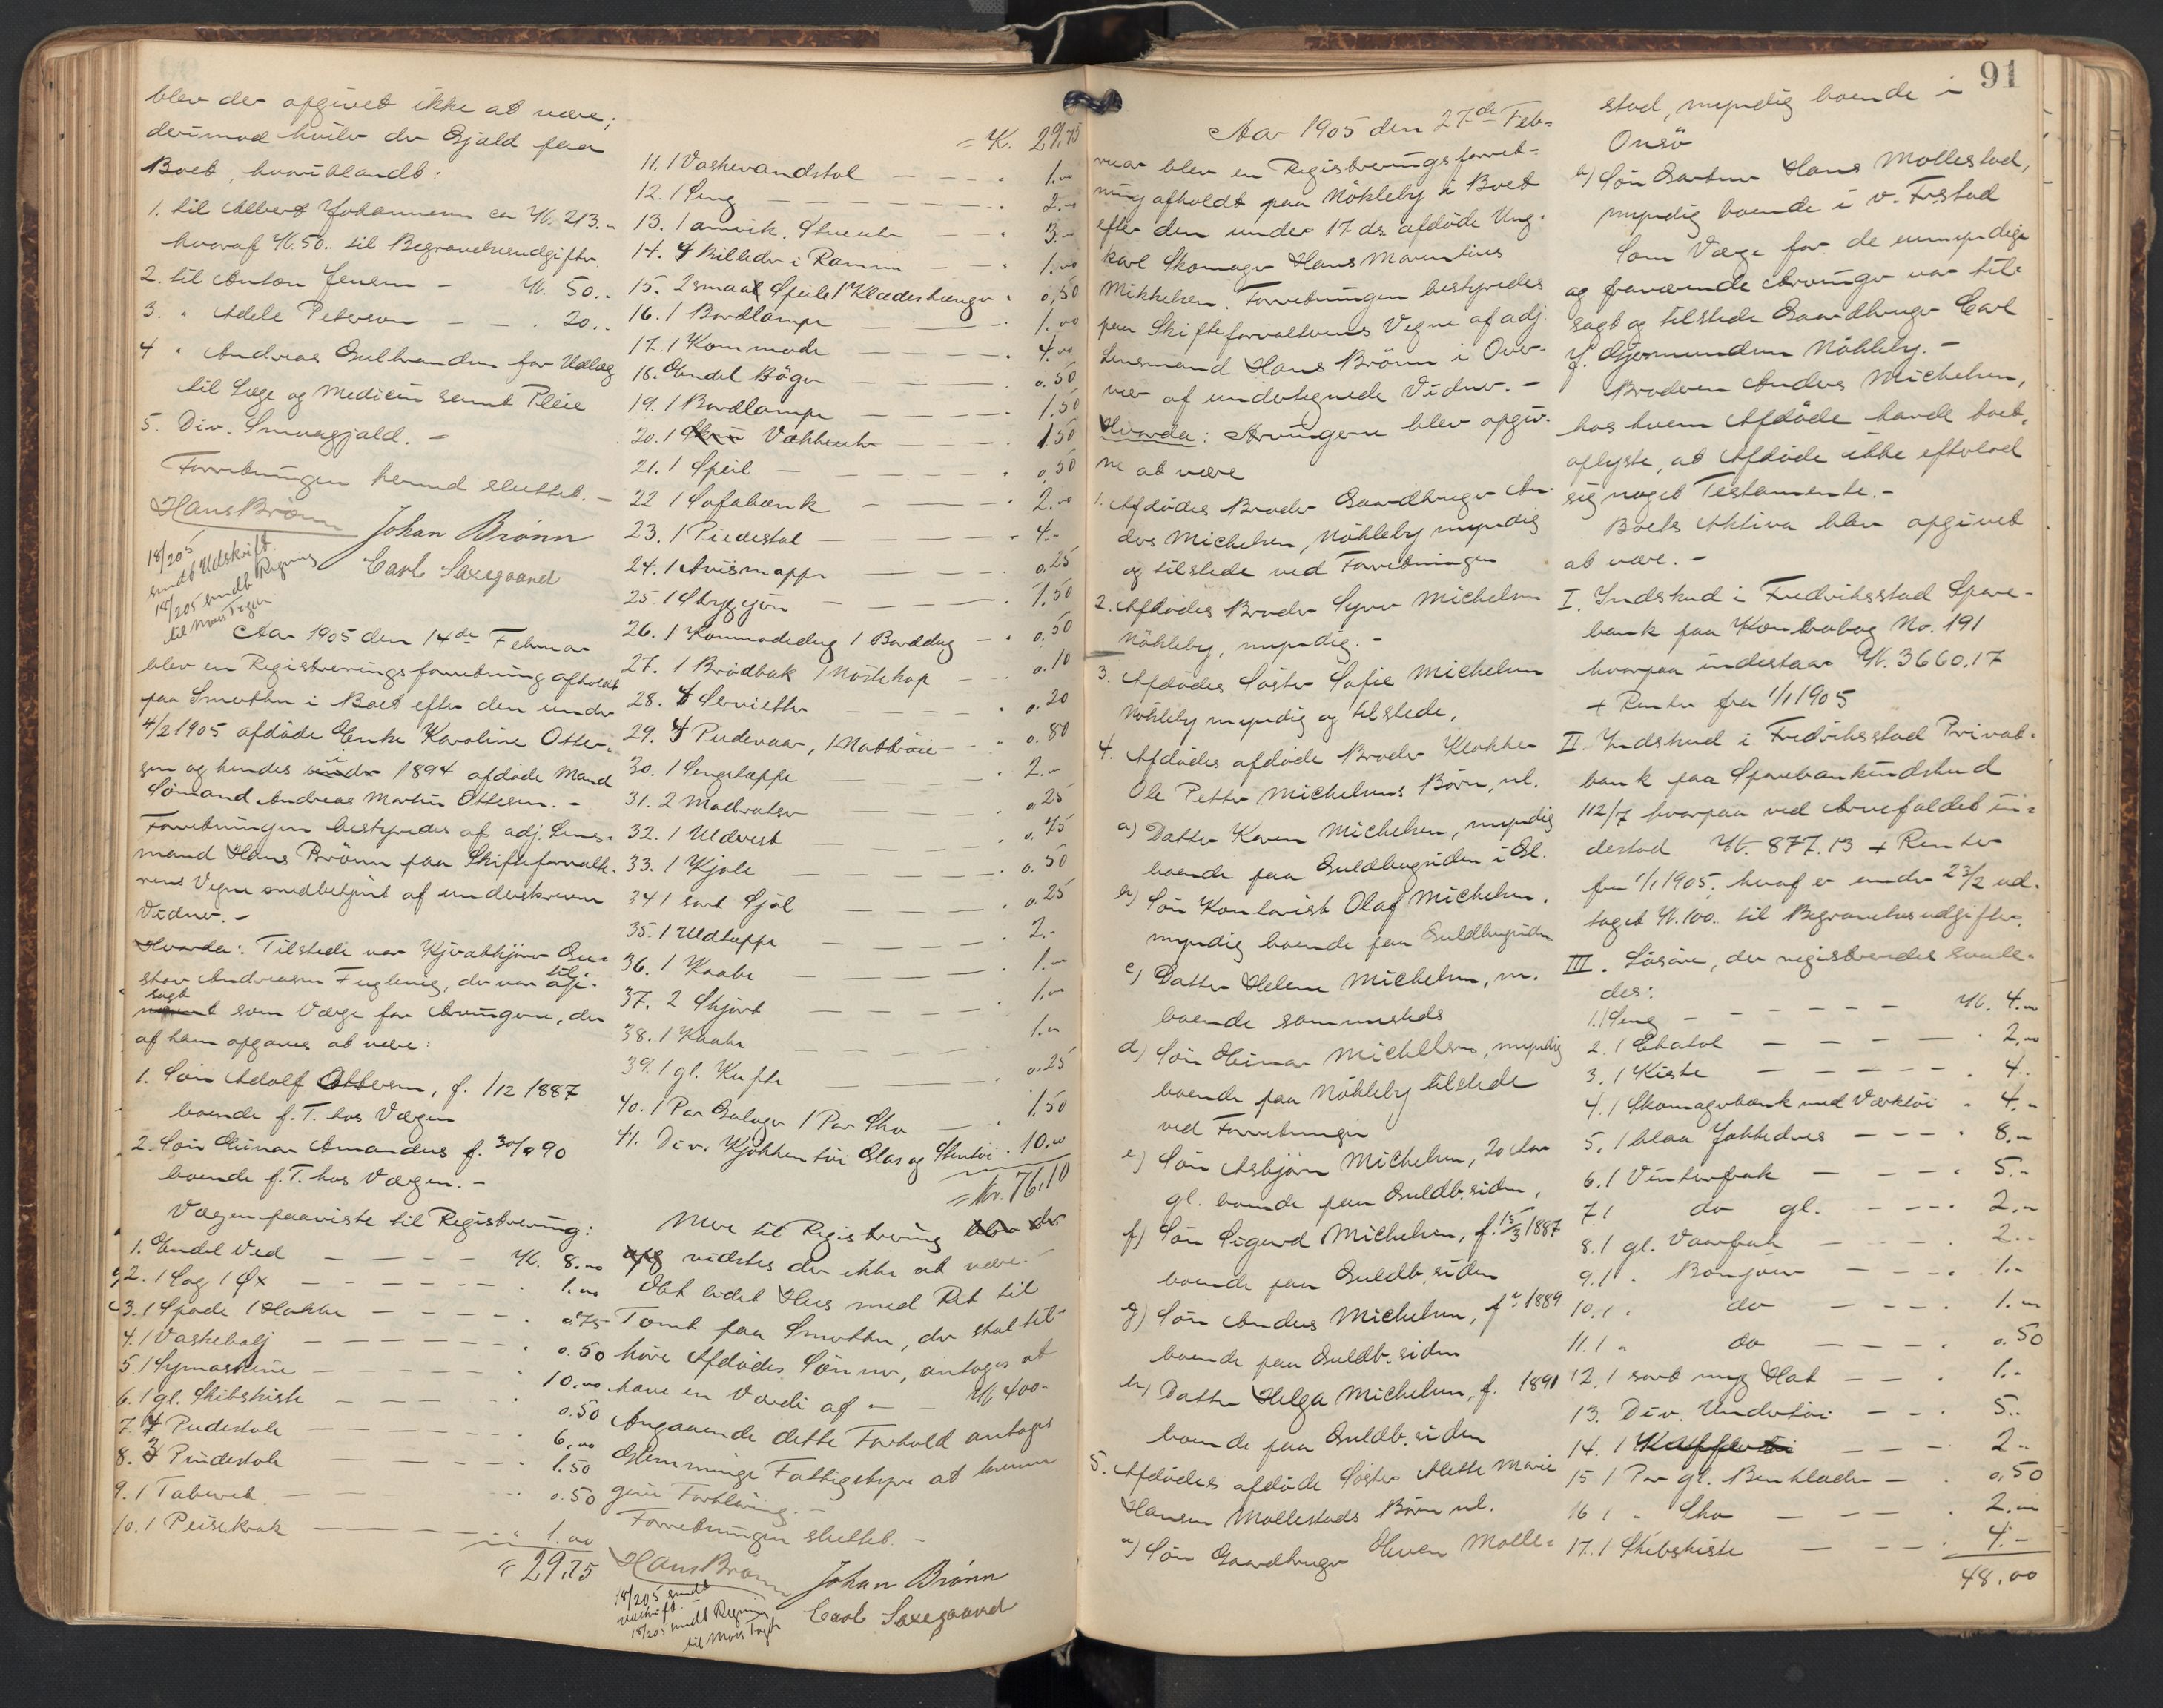 blev der opgivet ikke at være;
derimod hviler der Gjæld paa
Boet, hvoriblandt:
1. til Albert Johannesen ca Kr. 213.-
hvoraf Kr. 50.. til Begravelsesudgifter.
2. til Anton Jensen - Kr. 50..
3. " Adele Peterson - - . 20..
4 " Andreas Gulbrandsen for Udlæg
til Læge og Medicin samt Pleie
5. Div. Smaagjæld. -
Forretningen hermed sluttet. -
Hans Brönn
Johan Brönn
Carl Saxegaard
18/2 05
sendt Udskrift.
18/2 05 sendt Regning
til Moss Foged
Aar 1905 den 14de Februar
blev en Registreringsforretning afholdt
paa Smertun i Boet efter den under
4/2 1905 afdöde Enke Karoline Otte-
sen og hendes i 1894 afdöde Mand
Sömand Andreas Martin Ottesen. -
Forretningen bestyredes af adj. Lens-
mand Hans Brönn paa Skifteforvalte-
rens Vegne medbetjent af underskrevne
Vidner. -
Hvorda: Tilstede var Gu-
stav Andreasen Fuglevig, der var til-
sagt som Værge for Arvingerne, der
af ham opgaves at være:
1. Sön Adolf Ottesen, f. 1/12 1887
boende f. T. hos Værgen
2. Sön Einar Amandus f. 30/9 90
boende f. T. hos Værgen. -
Værgen paaviste til Registrering:
1. Endel Ved - - - - Kr. 8.00
2. 1 Sag 1 Øx - - - - 1.00
3. 1 Spade 1 Hakke - - - - 0.75
4. 1 Vaskebalj - - - - 0.50
5. 1 Symaskine - - - - 10.00
6. 1 gl. Skibskiste - - - - 0.50
7. 4 Pindestole - - - - 6.00
8. 3 Pindestole - - - - 1.50
9. 1 Taburet - - - - 0.50
10. 1 Peisekrak - - - - 1.00
= 29.75
= K. 29,75
11. 1 Vaskevandstol - - - . 1.00
12. 1 Seng - - - - . 2.-
13. 1 amrik. Stueuhr - - . 3.-
14. 4 Billeder i Ramme - - . 1.00
15. 2 smaa Speile 1 Klædeshænger . 0,50
16. 1 Bordlampe - - - . 1.00
17. 1 Kommode - - - . 4.00
18. Endel Böger - - - . 0.50
19. 1 Bordlampe - - - . 1.50
20. 1 Vækkeuhr - - - 1.50
21. 1 Speil - - - - . 0,50
22 1 Sofabænk - - - . 2.00
23. 1 Piedestal - - - - 4.-
24. 1 Avismappe - - - . 0.25
25. 1 Strygejern - - - . 1.50
26. 1 Kommodedug 1 Borddug - . 0.50
27. 1 Brödbak - . 0.10
28. 8 Servietter - - - . 0.20
29. 4 Pudevaar, 1 Nattröie - - . 0.80
30. 1 Sengetæppe - - - . 2.-
31. 2 Madratser - - - . 0.25
32. 1 Uldvest - - - . 0.75
33. 1 Kjole - - - . 0.50
34 1 sort Sjal - - - . 0.25
35. 1 Uldtæppe - - - . 2.-
36. 1 Kaabe - - - . 1.-
37. 2 Skjört - - - . 1.00
38. 1 Kaabe - - - . 1.00
39. 1 gl. Kufte - - - . 0.25
40. 1 Par Galoger 1 Par Sko - . 1.50
41. Div. Kjökkentöi Glas og Stentöi . 10.00
= Kr. 76,10
Mere til Registrering
vidstes der ikke at være.
Et lidet Hus med Ret til
Tomt paa Smertun, der skal til-
höre Afdödes Sönner, antages at
have en Værdi af - - Kr 400-
Angaaende dette Forhold antages
Glemminge Fattigstyre at kunne
give Forklaring. -
Forretningen sluttet. -
Hans Brönn
Johan Brönn
Carl Saxegaard
18/2 05 sendt
Udskrift. -
18/2 05 sendt Regning
til Moss Foged
91
Aar 1905 den 27de Feb-
ruar blev en Registreringsforret-
ning afholdt paa Nökleby i Boet
efter den under 17 ds. afdöde Ung-
karl Skomager Hans Maurentius
Mikkelsen. Forretningen bestyredes
paa Skifteforvalterens Vegne af adj.
Lensmand Hans Brönn i Over-
vær af undertegnede Vidner. -
Hvorda: Arvingerne blev opgiv-
ne at være
1. Afdödes Broder Gaardbruger An-
ders Michelsen, Nökleby myndig
og tilstede ved Forretningen
2. Afdödes Broder Syver Michelsen
Nökleby, myndig. -
3. Afdödes Söster Sofie Michelsen
Nökleby myndig og tilstede.
4. Afdödes afdöde Broder Klokker
Ole Petter Michelsens Börn, nl.
a) Datter Karen Michelsen, myndig
boende paa Guldbergsiden i Gl.
b) Sön Kontorist Olaf Michelsen.
myndig boende paa Guldbergsiden
c) Datter Helene Michelsen, m.
boende sammesteds
d) Sön Einar Michelsen, myndig
boende paa Nökleby tilstede
ved Forretningen
e) Sön Asbjörn Michelsen, 20 Aar
gl. boende paa Guldb. siden,
f) Sön Sigurd Michelsen, f. 15/3 1887
boende paa Guldb. siden
g) Sön Anders Michelsen, f. 1889
boende paa Guldb. siden
h) Datter Helga Michelsen, f. 1891
boende paa Guldb. siden
5. Afdödes afdöde Söster Mette Marie
Hansen Mollestads Börn nl.
a) Sön Gaardbruger Even Molle-
stad, myndig boende i
Onsö
b) Sön Gartner Hans Mollestad,
myndig boende i v. Frstad
Som Værge for de umyndige
og fraværende Arvinger var til-
sagt og tilstede Gaardbruger Carl
J. Gjermundsen Nökleby. -
Broderen Anders Michelsen,
hos hvem Afdöde havde boet,
oplyste, at Afdöde ikke efterlod
sig noget Testamente. -
Boets Aktiva blev opgivet
at være. -
I. Indskud i Fredriksstad Spare-
bank paa Kontrabog No. 191
hvorpaa indestaar Kr. 3660.17
+ Renter fra 1/1 1905
II. Indskud i Fredriksstad Privat-
bank paa Sparebankindskud
112/7 hvorpaa ved Arvefaldet in-
destod Kr. 877.13 + Renter
fra 1/1 1905, hvoraf er under 23/2 ud-
taget Kr. 100.. til Begravelsesudgifter.
III. Lösöre, der registreredes saale-
des:
1. 1 Seng - - - - - Kr. 4.00
2. 1 Chatol - - - - . 2,00
3. 1 Kiste - - - - . 4..
4. 1 Skomagerbænk med Værktöi . 4.-
5. 1 blaa Jakkedres - - - . 8.-
6. 1 Vinterfrak - - - . 5.-
7. 1 do gl. - - - . 2.-
8. 1 gl. Vaarfrak - - - . 2..
9. 1 " Bonjour - - - . 1.-
10. 1 " do - - - . 1.-
11. 1 " do - - - . 0.50
12. 1 sort myg Hat - - . 1.-
13. Div. Undertöi - - . 5..
14. 1 - - - 2..
15 1 Par gl. Benklæder - . 0,50
16 1 " Sko - - - . 2.-
17. 1 Skibskiste - - - . 4.-
48.00